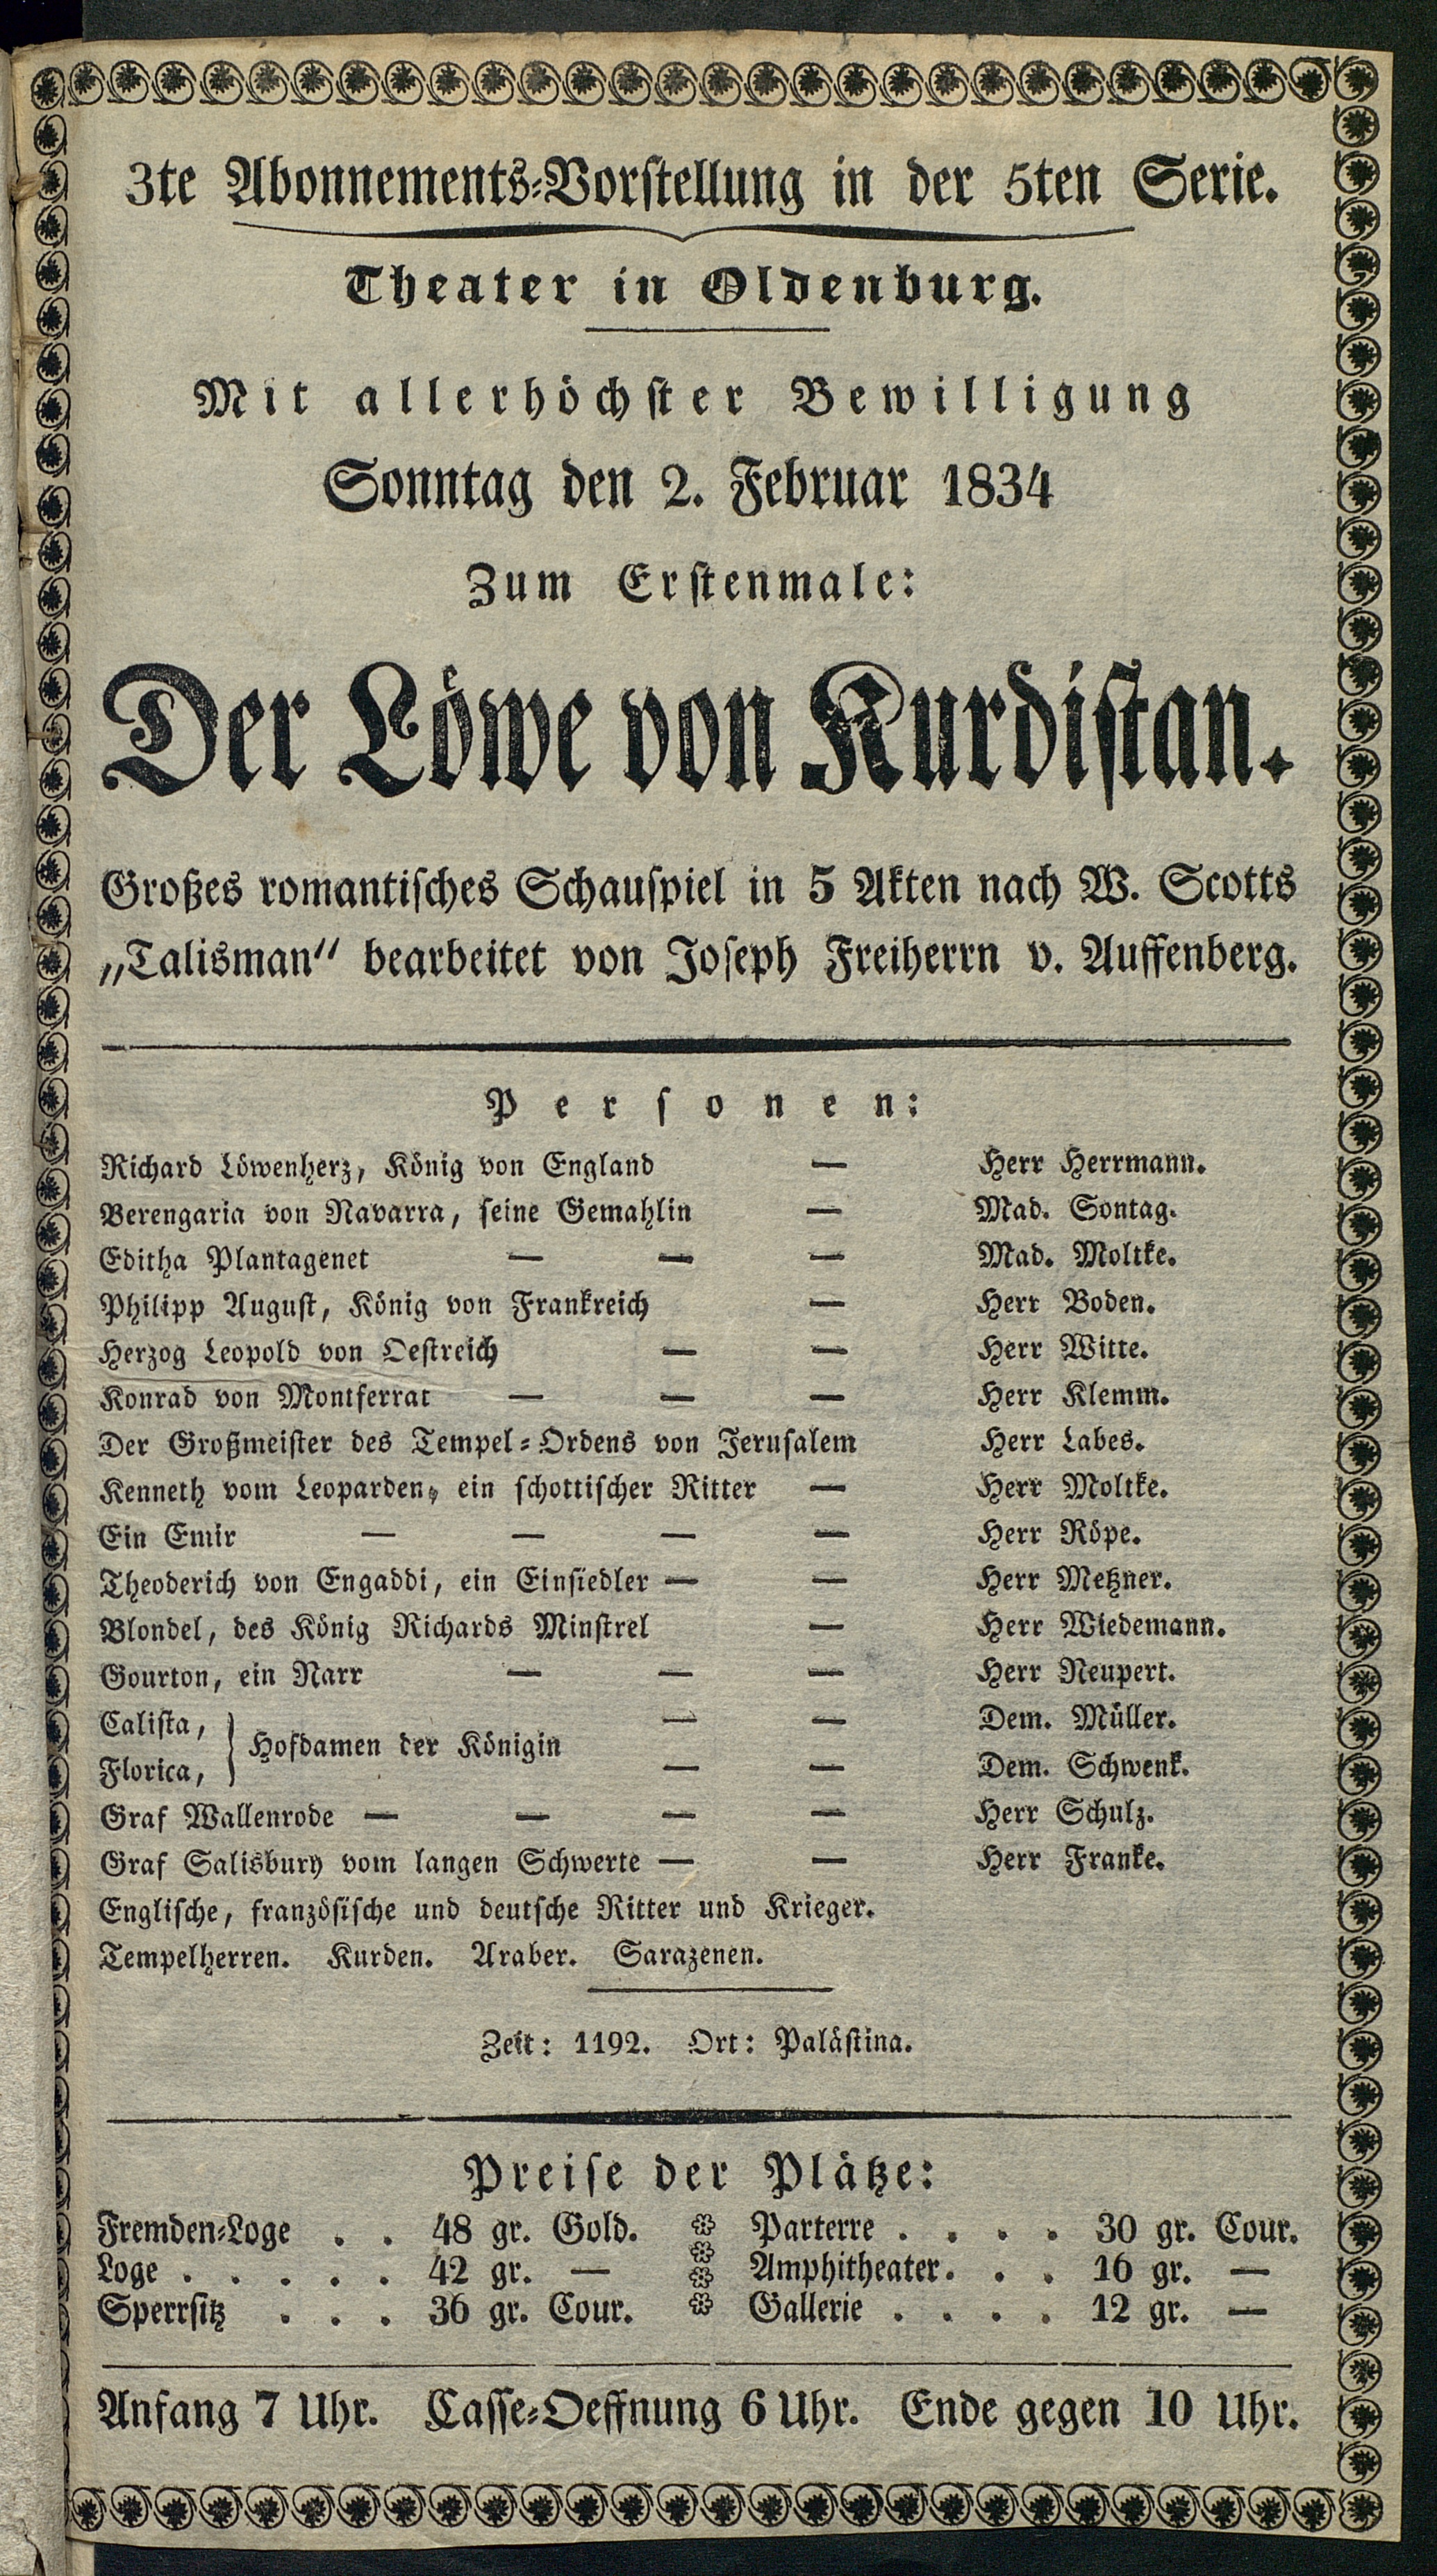 3te Abonnements-Vorstellung in der 5ten Serie.
Theater in Oldenburg.
Mit allerhöchster Bewilligung
Sonntag den 2. Februar 1834
Zum Erstenmale:
Der Löwe von Kurdistan.
Großes romantisches Schauspiel in 5 Akten nach W. Scotts
„Talisman“ bearbeitet von Joseph Freiherrn v. Auffenberg.
Personen:
Richard Löwenherz, König von England — Herr Herrmann.
Berengaria von Navarra, seine Gemahlin — Mad. Sontag.
Editha Plantagenet — — — Mad. Moltke.
Philipp August, König von Frankreich — Herr Boden.
Herzog Leopold von Oestreich — — Herr Witte.
Konrad von Montferrat — — — Herr Klemm.
Der Großmeister des Tempel-Ordens von Jerusalem Herr Labes.
Kenneth vom Leoparden, ein schottischer Ritter — Herr Moltke.
Ein Emir — — — — Herr Röpe.
Theoderich von Engaddi, ein Einsiedler — — Herr Metzner.
Blondel, des König Richards Minstrel — Herr Wiedemann.
Gourton, ein Narr — — — Herr Neupert.
Calista, — — Dem. Müller.
} Hofdamen der Königin
Florica, — — Dem. Schwenk.
Graf Wallenrode — — — — Herr Schulz.
Graf Salisbury vom langen Schwerte — — Herr Franke.
Englische, französische und deutsche Ritter und Krieger.
Tempelherren. Kurden. Araber. Sarazenen.
Zeit: 1192. Ort: Palästina.
Preise der Plätze:
Fremden-Loge . . 48 gr. Gold. Parterre . . . . 30 gr. Cour.
Loge . . . . . 42 gr. — Amphitheater. . . 16 gr. —
Sperrsitz . . . 36 gr. Cour. Gallerie . . . . 12 gr. —
Anfang 7 Uhr. Casse-Oeffnung 6 Uhr. Ende gegen 10 Uhr.